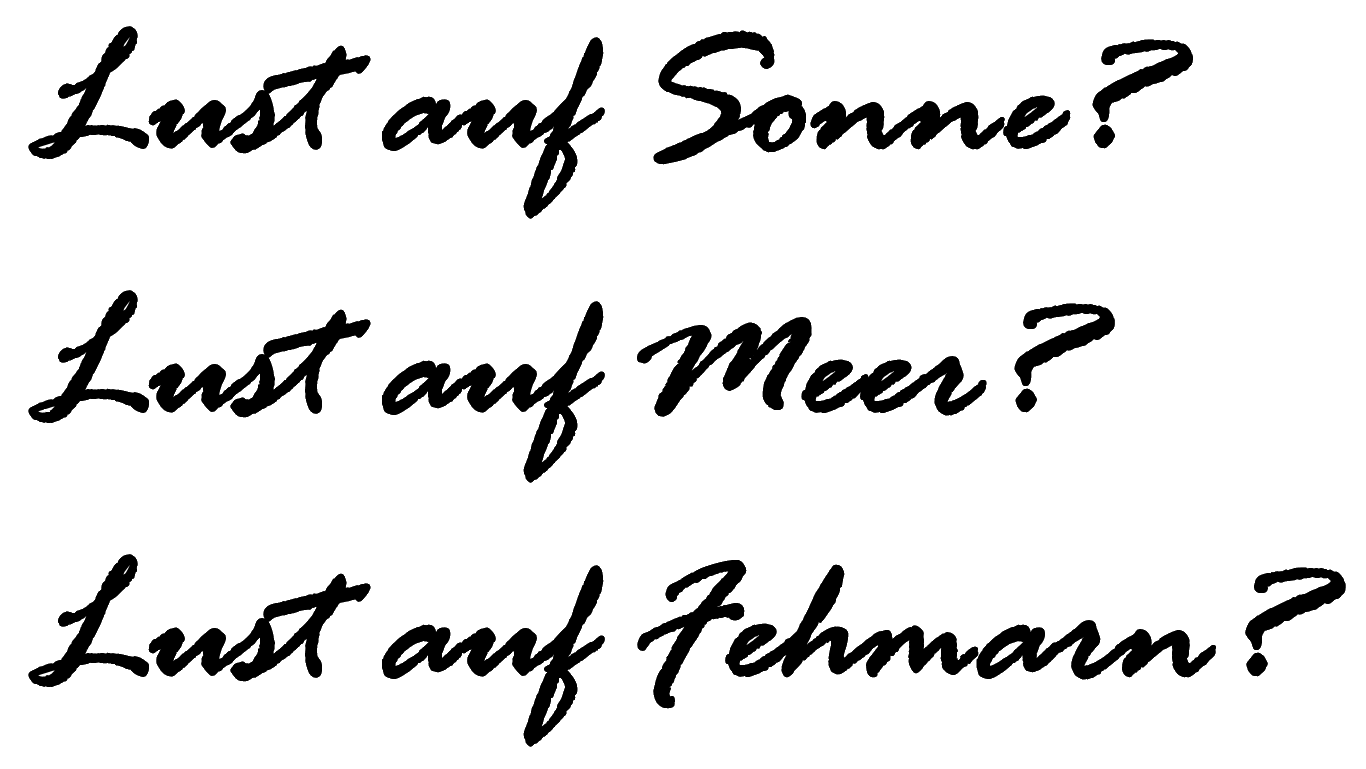 Lust auf Sonne?
Lust auf Meer?
Lust auf Fehmarn?